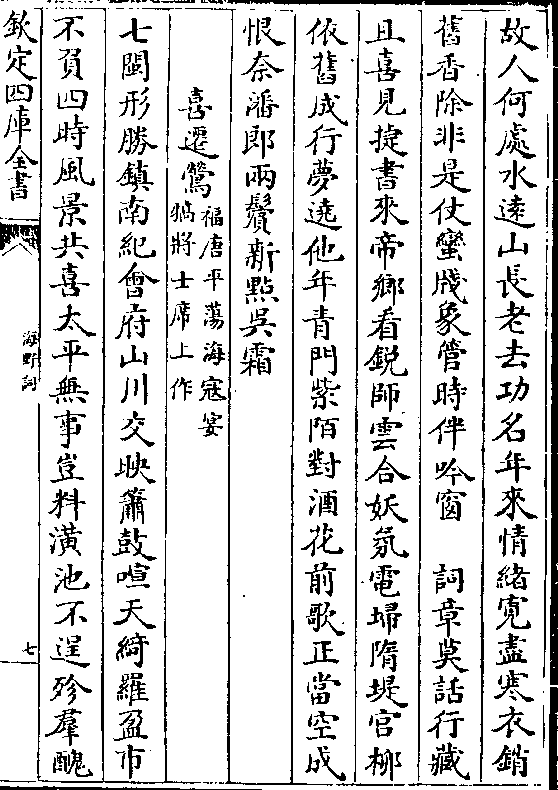 故人何處水遠山長老去功名年來情緒寛盡寒衣銷
舊香除非是仗蠻牋象管時伴吟窗　詞章莫話行藏
且喜見捷書來帝鄉看鋭師雲合妖氛電埽隋堤宮柳
依舊成行夢遶他年青門紫陌對酒花前歌正當空成
恨奈潘郎兩鬢新點吳霜
喜遷鶯福唐平蕩海寇宴
犒將士席上作
七閩形勝鎮南紀會府山川交映簫鼓喧天綺羅盈市
不負四時風景共喜太平無事豈料潢池不逞殄羣醜
欽定四庫全書
海野詞
七